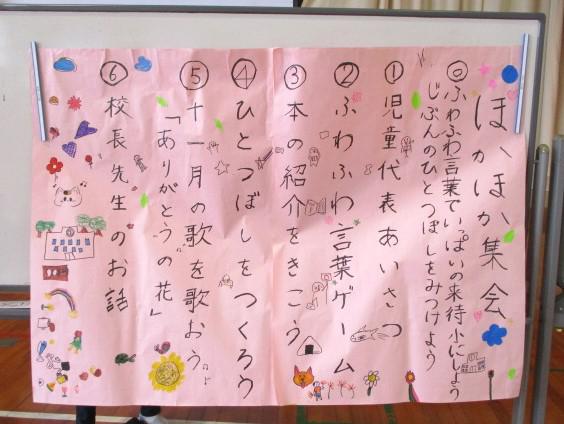 ほかほか集会
◎ふわふわ言葉でいっぱいの来待小にしよう
じぶんのひとつぼしをみつけよう
①児童代表あいさつ
②ふわふわ言葉ゲーム
③本の紹介をきこう
④ひとつぼしをつくろう
⑤十一月の歌を歌おう
「ありがとうの花」
⑥校長先生のお話